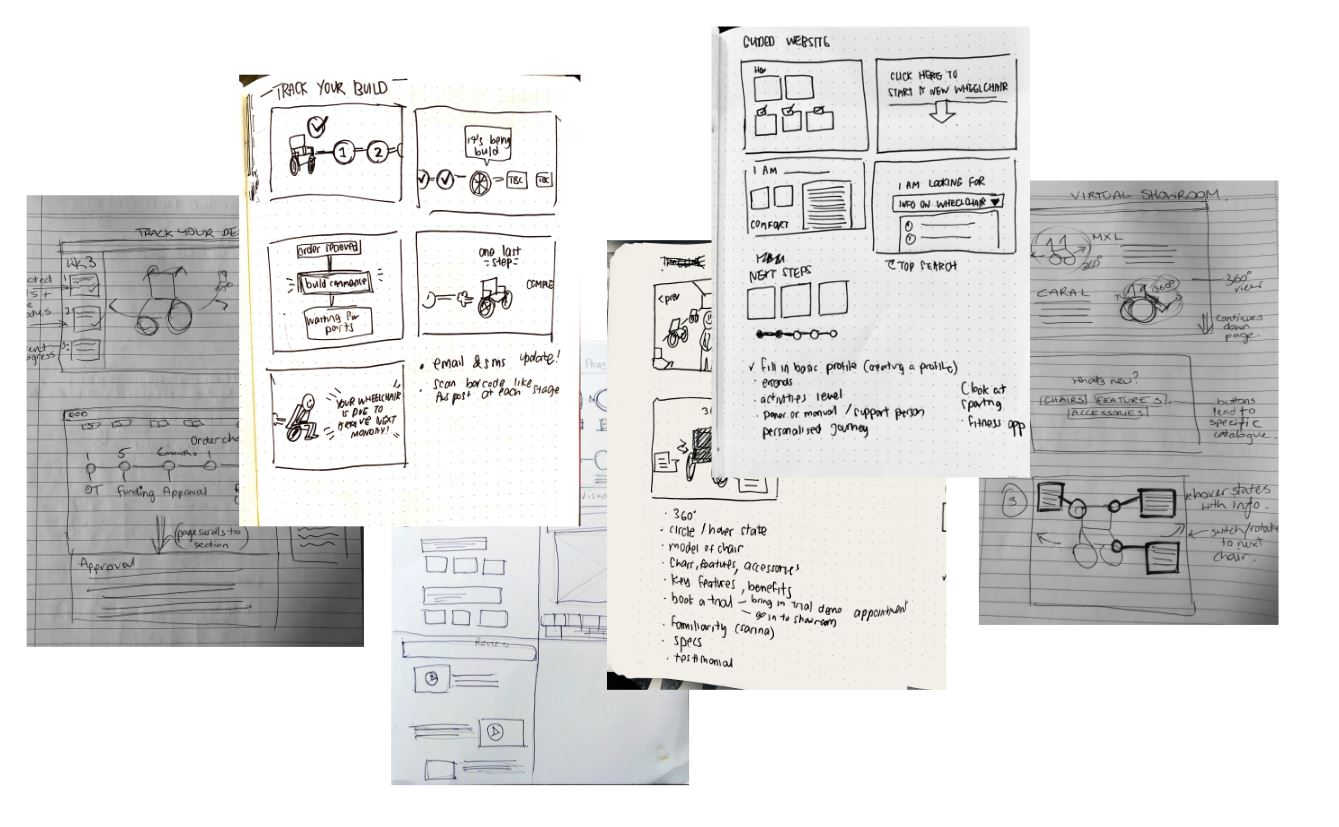 TRACK YOUR DE
WK3
1
2
OT
Funding
Approval
1
5
6 months
1
Order cha
(page scrolls to
section
Approval
TRACK YOUR BUILD
1
2
it's being
build
TBC
TBC
order recieved
build commence
waiting for
parts
one last
step
COMPLE
YOUR WHEELCHAIR
IS DUE TO
ARRIVE NEXT
MONDAY!
• email & sms update!
• scan barcode like
Aus post at each stage
<prev
3
• 360°
• circle / hover state
• model of chair
• Chairs, features, accessories
• Key features, benefits
• book a trial – bring in trial demo appointment
– go in to showroom
• familiarity (sarina)
• specs
• testimonial
GUIDED WEBSITE
CLICK HERE TO
START A NEW WHEELCHAIR
I AM
COMFORT
I AM LOOKING FOR
INFO ON WHEELCHAIR
TOP SEARCH
NEXT STEPS
✓ fill in basic profile (creating a profile)
• activities level
• power or manual / support person
personalised journey
(look at
sporting
fitness app
VIRTUAL SHOWROOM
MXL
360°
CARAL
360°
360°
view
continues
down
page
What's new?
CHAIRS
FEATURES
ACCESSORIES
buttons
lead to
specific
catalogue.
3
hover states
with info.
switch/rotate
to next
chair.